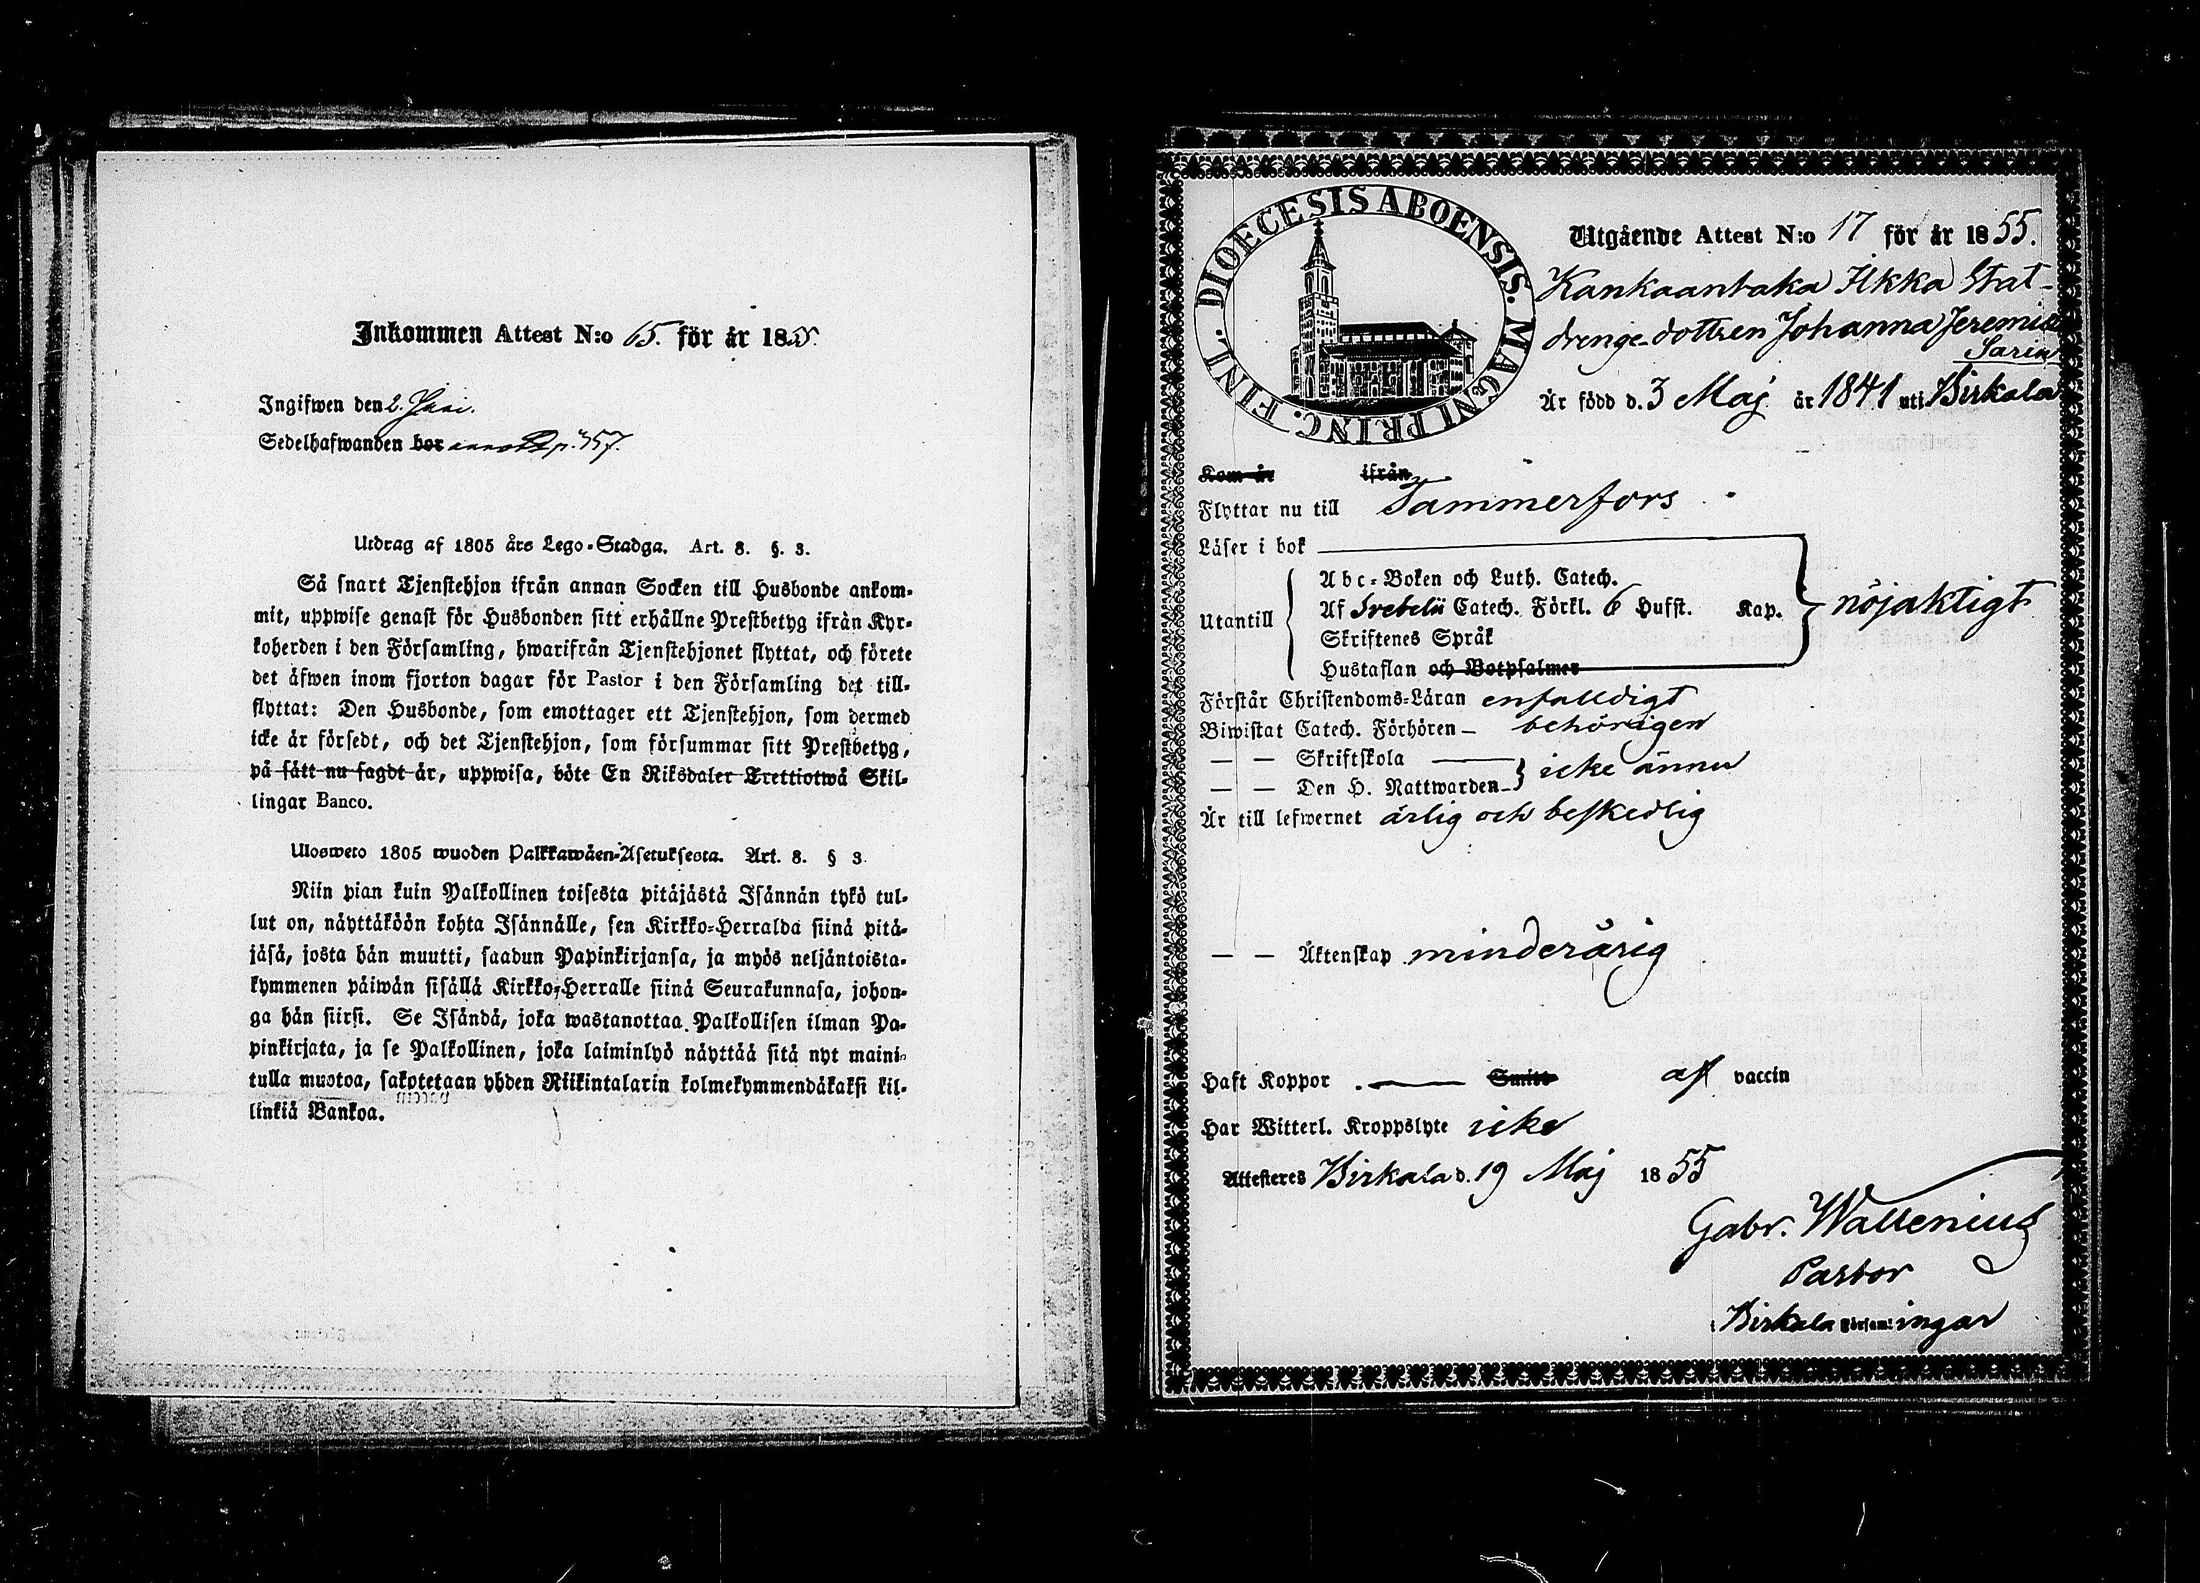 Inkommen Attest N:o 65. för år 1855.
Ingifwen den 2. Juni.
Sedelhafwanden bor p. 357.
Utdrag af 1805 års Lego-Stadga. Art. 8. §. 3.
Så snart Tjenstehjon ifrån annan Socken till Husbonde ankom-
mit, uppwise genast för Husbonden sitt erhållne Prestbetyg ifrån Kyr-
koherden i den Församling, hwarifrån Tjenstehjonet flyttat, och förete
det äfwen inom fjorton dagar för Pastor i den Församling det till-
flyttat: Den Husbonde, som emottager ett Tjenstehjon, som dermed
icke är försedt, och det Tjenstehjon, som försummar sitt Prestbetyg,
på sätt nu sagdt är, uppwisa, böte En Riksdaler Trettiotwå Skil-
lingar Banco.
Ulosweto 1805 wuoden Palkkawäen-Asetuksesta. Art. 8. § 3.
Niin pian kuin Palkollinen toisesta pitäjästä Isännän tykö tul-
lut on, näyttäköön kohta Isännälle, sen Kirkko-Herralda siinä pitä-
jäsä, josta hän muutti, saadun Papinkirjansa, ja myös neljäntoista-
kymmenen päiwän sisällä Kirkko-Herralle siinä Seurakunnasa, johon-
ga hän siirsi. Se Isändä, joka wastanottaa Palkollisen ilman Pa-
pinkirjata, ja se Palkollinen, joka laiminlyö näyttää sitä nyt maini-
tulla muotoa, sakotetaan yhden Riikintalarin kolmekymmendäkaksi kil-
linkiä Bankoa.
DIOECESIS ABOENSIS. MAGNI PRINC. FINL.
Utgående Attest N:o 17 för år 1855.
Kankaantaka Ilkka Stat-
drenge-dottren Johanna Jeremia
Är född d. 3 Maj år 1841 uti Birkala
Kom år ifrån
Flyttar nu till Tammerfors
Läser i bok
Abc-Boken och Luth. Catech.
Utantill Af Svebelii Catech. Förkl. 6 Hufst. Kap. nöjaktigt
Skriftenes Språk
Hustaflan och Botpsalmer
Förstår Christendoms-Läran enfalldigt
Biwistat Catech. Förhören - behörigen
— — Skriftskola
— — Den H. Nattwarden icke ännu
Är till lefwernet ärlig och beskedlig
— — Äktenskap minderårig
Haft Koppor Smitt af vaccin
Har Witterl. Kroppslyte icke
Attesteres Birkala d. 19 Maj 1855
Gabr. Wallenius
Pastor
Birkala Församlingar